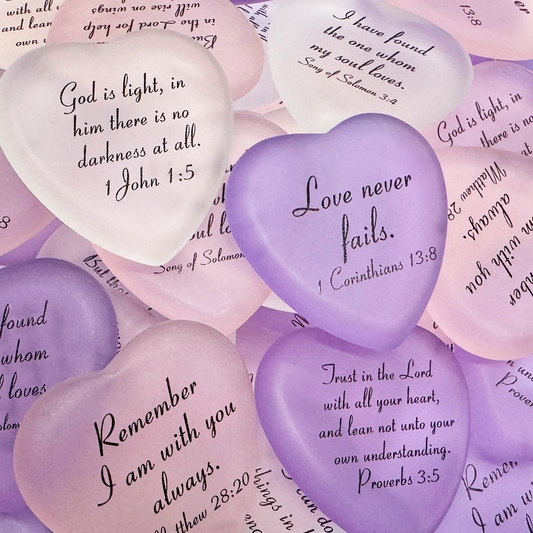 with all
and lean
own
in the Lord for help
will rise on wings
But
I have found
the one whom
my soul loves.
Song of Solomon 3:4
13:8
God is light, in
him there is no
darkness at all.
1 John 1:5
God is light, in
there is no
Love never
fails.
1 Corinthians 13:8
Matthew 28
always.
am with you
soul lo
Song of Solomon
But th
found
whom
loves
Remember
I am with you
always.
Matthew 28:20
Trust in the Lord
with all your heart,
and lean not unto your
own understanding.
Proverbs 3:5
Prover
things in
can do
Remem